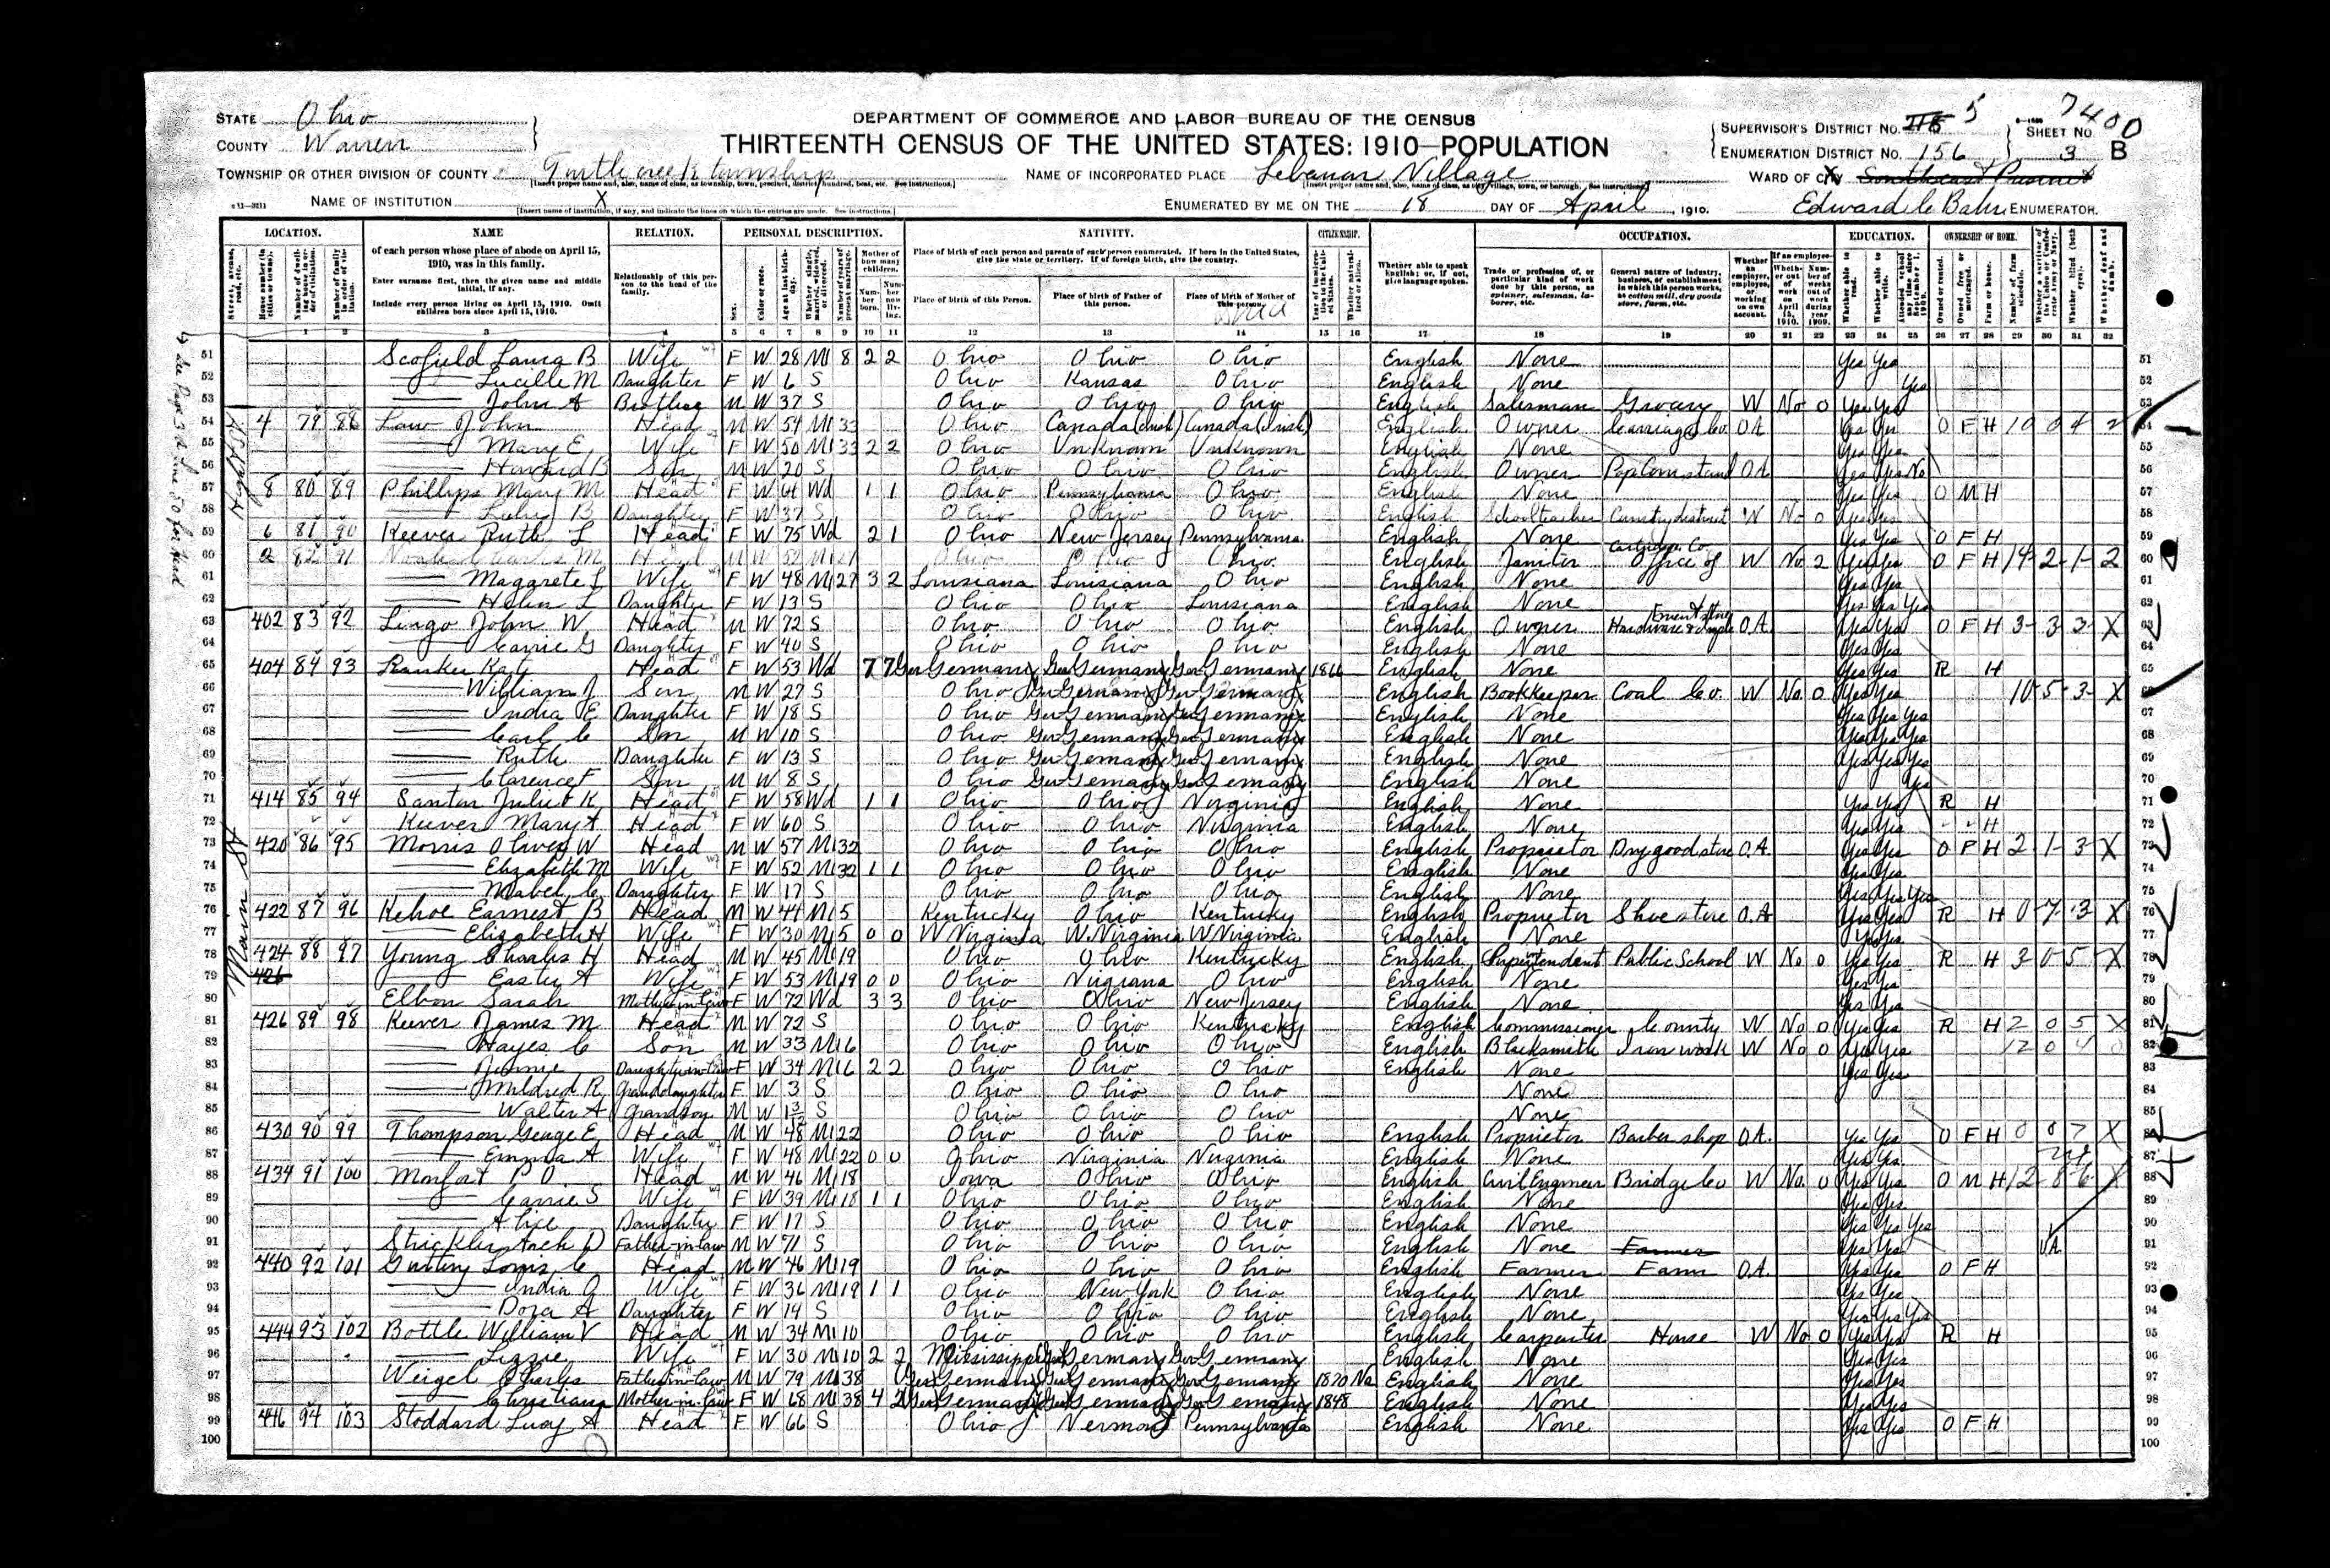 STATE Ohio
COUNTY Warren
DEPARTMENT OF COMMERCE AND LABOR—BUREAU OF THE CENSUS
THIRTEENTH CENSUS OF THE UNITED STATES: 1910—POPULATION
SUPERVISOR'S DISTRICT NO. 5
ENUMERATION DISTRICT NO. 156
7400
SHEET NO. 3 B
TOWNSHIP OR OTHER DIVISION OF COUNTY Turtlecreek township
NAME OF INCORPORATED PLACE Lebanon Village
WARD OF CITY X Southeast Precinct
NAME OF INSTITUTION X
ENUMERATED BY ME ON THE 18 DAY OF April, 1910.
Edward C Bahn, ENUMERATOR.
LOCATION. NAME RELATION. PERSONAL DESCRIPTION. NATIVITY. CITIZENSHIP. OCCUPATION. EDUCATION. OWNERSHIP OF HOME.
of each person whose place of abode on April 15, 1910, was in this family.
Enter surname first, then the given name and middle initial, if any.
Include every person living on April 15, 1910. Omit children born since April 15, 1910.
Relationship of this person to the head of the family.
Place of birth of each person and parents of each person enumerated. If born in the United States, give the state or territory. If of foreign birth, give the country.
Place of birth of this Person. Place of birth of Father of this person. Place of birth of Mother of this person.
Whether able to speak English; or, if not, give language spoken.
Trade or profession of, or particular kind of work done by this person, as spinner, salesman, laborer, etc.
General nature of industry, business, or establishment in which this person works, as cotton mill, dry goods store, farm, etc.
51 Scofield Laura B Wife F W 28 M1 8 2 2 Ohio Ohio Ohio English None Yes Yes
52 Lucille M Daughter F W 6 S Ohio Kansas Ohio English None Yes
53 John A Brother M W 37 S Ohio Ohio Ohio English Salesman Grocery W No 0 Yes Yes
54 4 79 88 Law John Head M W 54 M1 33 Ohio Canada (Irish) Canada (Irish) English Owner Carriage Co. OA Yes Yes O F H
55 Mary E Wife F W 50 M1 33 2 2 Ohio Unknown Unknown English None Yes Yes
56 Howard B Son M W 20 S Ohio Ohio Ohio English Owner Pop Corn stand OA Yes Yes No
57 8 80 89 Phillips Mary M Head F W 61 Wd 1 1 Ohio Pennsylvania Ohio English None Yes Yes O M H
58 B Daughter F W 37 S Ohio Ohio Ohio English School teacher Country district W No 0 Yes Yes
59 6 81 90 Keever Ruth L Head F W 75 Wd 2 1 Ohio New Jersey Pennsylvania English None Yes Yes O F H
60 2 82 91 M Head M W 52 M1 27 Ohio Ohio Ohio English Janitor Office of Cartridge Co W No 2 Yes Yes O F H
61 Maggrete L Wife F W 48 M1 27 3 2 Louisiana Louisiana Ohio English None Yes Yes
62 Helen L Daughter F W 13 S Ohio Ohio Louisiana English None Yes Yes Yes
63 402 83 92 Lingo John W Head M W 72 S Ohio Ohio Ohio English Owner Hardware OA Yes Yes O F H
64 Carrie G Daughter F W 40 S Ohio Ohio Ohio English None Yes Yes
65 404 84 93 Ranker Kate Head F W 53 Wd 7 7 Ger Germany Ger Germany Ger Germany 1866 English None Yes Yes R H
66 William J Son M W 27 S Ohio Ger Germany Ger Germany English Bookkeeper Coal Co. W No 0 Yes Yes
67 India E Daughter F W 18 S Ohio Ger Germany Ger Germany English None Yes Yes Yes
68 Carl C Son M W 10 S Ohio Ger Germany Ger Germany English None Yes Yes Yes
69 Ruth Daughter F W 13 S Ohio Ger Germany Ger Germany English None Yes Yes Yes
70 Clarence F Son M W 8 S Ohio Ger Germany Ger Germany English None Yes
71 414 85 94 Santon Juliet K Head F W 58 Wd 1 1 Ohio Ohio Virginia English None Yes Yes R H
72 Keever Mary A Head F W 60 S Ohio Ohio Virginia English None Yes Yes H
73 420 86 95 Morris Oliver W Head M W 57 M1 32 Ohio Ohio Ohio English Proprietor Dry good store O.A. Yes Yes O F H
74 Elizabeth M Wife F W 52 M1 32 1 1 Ohio Ohio Ohio English None Yes Yes
75 Mabel C Daughter F W 17 S Ohio Ohio Ohio English None Yes Yes Yes
76 422 87 96 Kehoe Earnest B Head M W 44 M1 5 Kentucky Ohio Kentucky English Proprietor Shoe store O.A Yes Yes R H
77 Elizabeth H Wife F W 30 M1 5 0 0 W Virginia W. Virginia W Virginia English None Yes Yes
78 424 88 97 Young Charles H Head M W 45 M1 19 Ohio Ohio Kentucky English Superintendent Public School W No 0 Yes Yes R H
79 426 Easter A Wife F W 53 M1 19 0 0 Ohio Virginia Ohio English None Yes Yes
80 Elbon Sarah Mother-in-law F W 72 Wd 3 3 Ohio Ohio New Jersey English None Yes Yes
81 426 89 98 Keever James M Head M W 72 S Ohio Ohio Kentucky English Commissioner County W No 0 Yes Yes R H
82 Hayes C Son M W 33 M1 6 Ohio Ohio Ohio English Blacksmith Iron work W No 0 Yes Yes
83 Daughter-in-law F W 34 M1 6 2 2 Ohio Ohio Ohio English None Yes Yes
84 Mildred R Granddaughter F W 3 S Ohio Ohio Ohio None
85 Walter A Grandson M W 1 3/12 S Ohio Ohio Ohio None
86 430 90 99 Thompson George E Head M W 48 M1 22 Ohio Ohio Ohio English Proprietor Barber shop O.A. Yes Yes O F H
87 Emma A Wife F W 48 M1 22 0 0 Ohio Virginia Virginia English None Yes Yes
88 434 91 100 Monfort P O Head M W 46 M1 18 Iowa Ohio Ohio English Civil Engineer Bridge Co W No. 0 Yes Yes O M H
89 Carrie S Wife F W 39 M1 18 1 1 Ohio Ohio Ohio English None Yes Yes
90 Alice Daughter F W 17 S Ohio Ohio Ohio English None Yes Yes Yes
91 Strickler D Father-in-law M W 71 S Ohio Ohio Ohio English None Farmer Yes Yes UA
92 440 92 101 Gustin Lonis C Head M W 46 M1 19 Ohio Ohio Ohio English Farmer Farm O.A. Yes Yes O F H
93 India G Wife F W 36 M1 19 1 1 Ohio New York Ohio English None Yes Yes
94 Dora A Daughter F W 14 S Ohio Ohio Ohio English None Yes Yes Yes
95 444 93 102 Bottle William V Head M W 34 M1 10 Ohio Ohio Ohio English Carpenter House W No 0 Yes Yes R H
96 Lizzie Wife F W 30 M1 10 2 2 Mississippi Ger Germany Ger Germany English None Yes Yes
97 Weigel Charles Father-in-law M W 79 M1 38 Ger Germany Ger Germany Ger Germany 1870 Na English None Yes Yes
98 Christiana Mother-in-law F W 68 M1 38 4 2 Ger Germany Ger Germany Ger Germany 1848 English None Yes Yes
99 446 94 103 Stoddard Lucy A Head F W 66 S Ohio Vermont Pennsylvania English None Yes Yes O F H
100
Main St